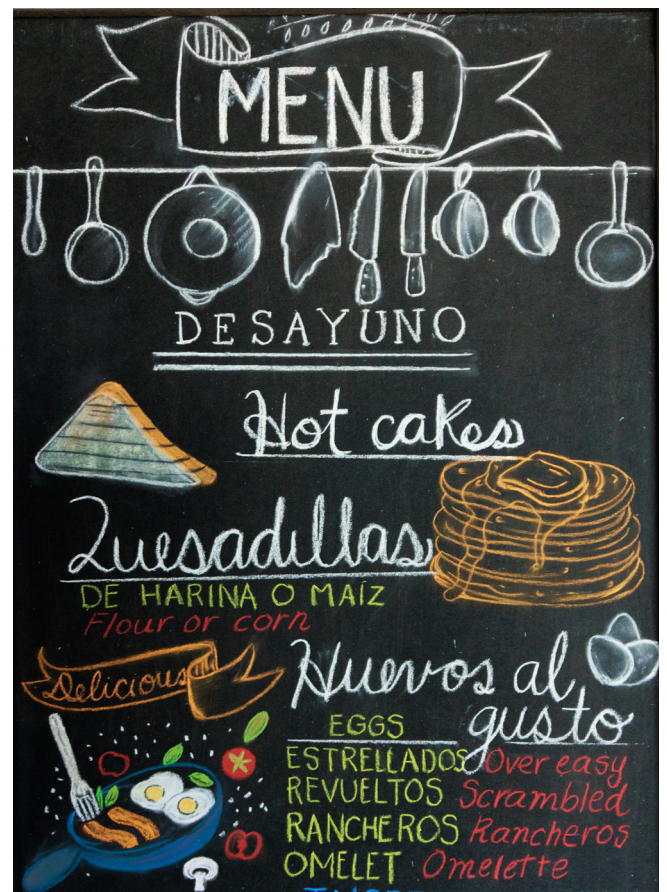 MENU
DESAYUNO
Hot cakes
Quesadillas
DE HARINA O MAÍZ
Flour or corn
Delicious
Huevos al
gusto
EGGS
ESTRELLADOS Over easy
REVUELTOS Scrambled
RANCHEROS Rancheros
OMELET Omelette